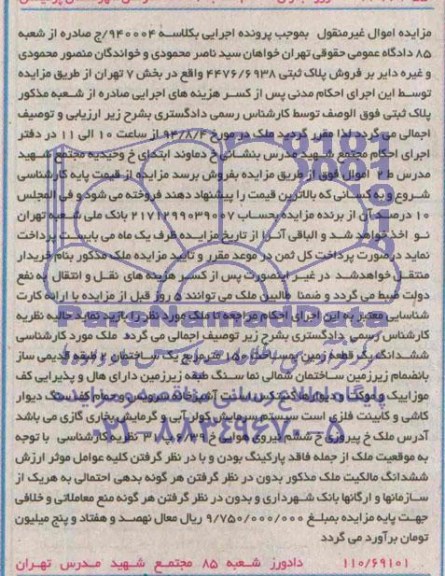 مزایده اموال غیرمنقول بموجب پرونده اجرایی بکلاسه ۹۴۰۰۰۴/ج صادره از شعبه
۸۵ دادگاه عمومی حقوقی تهران خواهان سید ناصر محمودی و خواندگان منصور محمودی
و غیره دایر بر فروش پلاک ثبتی ۴۴۷۶/۶۹۳۸ واقع در بخش ۷ تهران از طریق مزایده
توسط این اجرای احکام مدنی پس از کسر هزینه های اجرایی صادره از شعبه مذکور
پلاک ثبتی فوق الوصف توسط کارشناس رسمی دادگستری بشرح زیر ارزیابی و توصیف
اجمالی می گردد لذا مقرر گردید ملک در مورخ ۹۴/۸/۴ از ساعت ۱۰ الی ۱۱ در دفتر
اجرای احکام مجتمع شهید مدرس بنشانی خ دماوند ابتدای خ وحیدیه مجتمع شهید
مدرس ط ۲ اموال فوق از طریق مزایده بفروش برسد مزایده از قیمت پایه کارشناسی
شروع و به کسانی که بالاترین قیمت را پیشنهاد دهند فروخته می شود و فی المجلس
۱۰ درصد آن از برنده مزایده بحساب ۲۱۷۱۲۹۹۰۳۹۰۰۷ بانک ملی شعبه تهران
نو اخذ خواهد شد و الباقی آنرا از تاریخ مزایده ظرف یک ماه می بایست پرداخت
نماید در صورت پرداخت کل ثمن در موعد مقرر و تایید مزایده ملک مذکور بنام خریدار
منتقل خواهد شد در غیر اینصورت پس از کسر هزینه های نقل و انتقال به نفع
دولت ضبط می گردد و ضمنا طالبین ملک می توانند ۵ روز قبل از مزایده با ارائه کارت
شناسایی معتبر به این اجرای احکام مراجعه تا ملک مورد نظر را بازدید نماید حالیه نظریه
کارشناس رسمی دادگستری بشرح زیر توصیف اجمالی می گردد ملک مورد کارشناسی
ششدانگ یک قطعه زمین بمساحت ۱۵۰ مترمربع یک ساختمان ۲ طبقه قدیمی ساز
بانضمام زیرزمین ساختمان شمالی نما سنگ طبقه زیرزمین دارای هال و پذیرایی کف
موزاییک و موکت و دیوارها گچ است آشپزخانه و سرویس و حمام کف سنگ دیوار
کاشی و کابینت فلزی است سیستم سرمایش کولر آبی و گرمایش بخاری گازی می باشد
آدرس ملک خ پیروزی خ ششم نیروی هوایی خ نظریه کارشناسی با توجه
به موقعیت ملک از جمله فاقد پارکینگ بودن و با در نظر گرفتن کلیه عوامل موثر ارزش
ششدانگ مالکیت ملک مذکور بدون در نظر گرفتن هر گونه بدهی احتمالی به هریک از
سازمانها و ارگانها بانک شهرداری و بدون در نظر گرفتن هر گونه منع معاملاتی و خلافی
جهت پایه مزایده بمبلغ ۹/۷۵۰/۰۰۰/۰۰۰ ریال معال نهصد و هفتاد و پنج میلیون
تومان برآورد می گردد
۱۱۰/۶۹۱۰۱ دادورز شعبه ۸۵ مجتمع شهید مدرس تهران
ParsNamadData
پایگاه اطلاع رسانی مناقصه و مزایده
۰۲۱-۸۸۳۴۹۶۷۰-۵